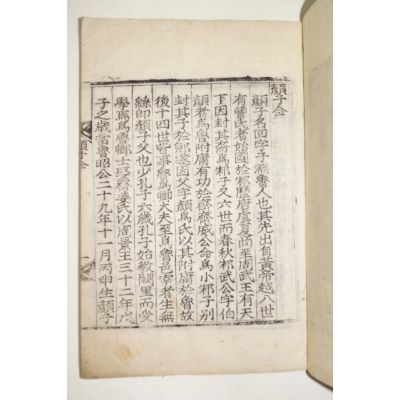 顔子仝
顔子名回字子淵魯人也其先出自黃帝越八世
有曹氏者始國於邾歷唐虞夏商至周武王有天
下因封其裔為邾子又六世而春秋邾武公字伯
顔者為魯附庸有功於齊威公命為小邾子別
封其子於郳遂因父字顔為氏以其附庸於魯故
後十四世皆事魯為卿大夫至爲魯邑宰者生無
繇即顔子父也少孔子六歲孔子始教闕里而受
學焉為魯卿士娶齊姜氏以周景王三十二年戊
子之歲當魯昭公二十九年十一月丙申生顔子
顔子仝